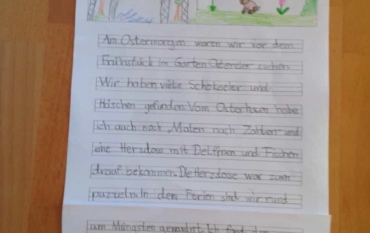 Am Ostermorgen waren wir vor dem
Frühstück im Garten Ostereier suchen
Wir haben viele Schokoeier und
Häschen gefunden. Vom Osterhasen habe
ich auch noch „Malen nach Zahlen" und
eine Herzdose mit Delfinen und Fischen
drauf bekommen. Die Herzdose war zum
puzzeln. In den Ferien sind wir rund
um